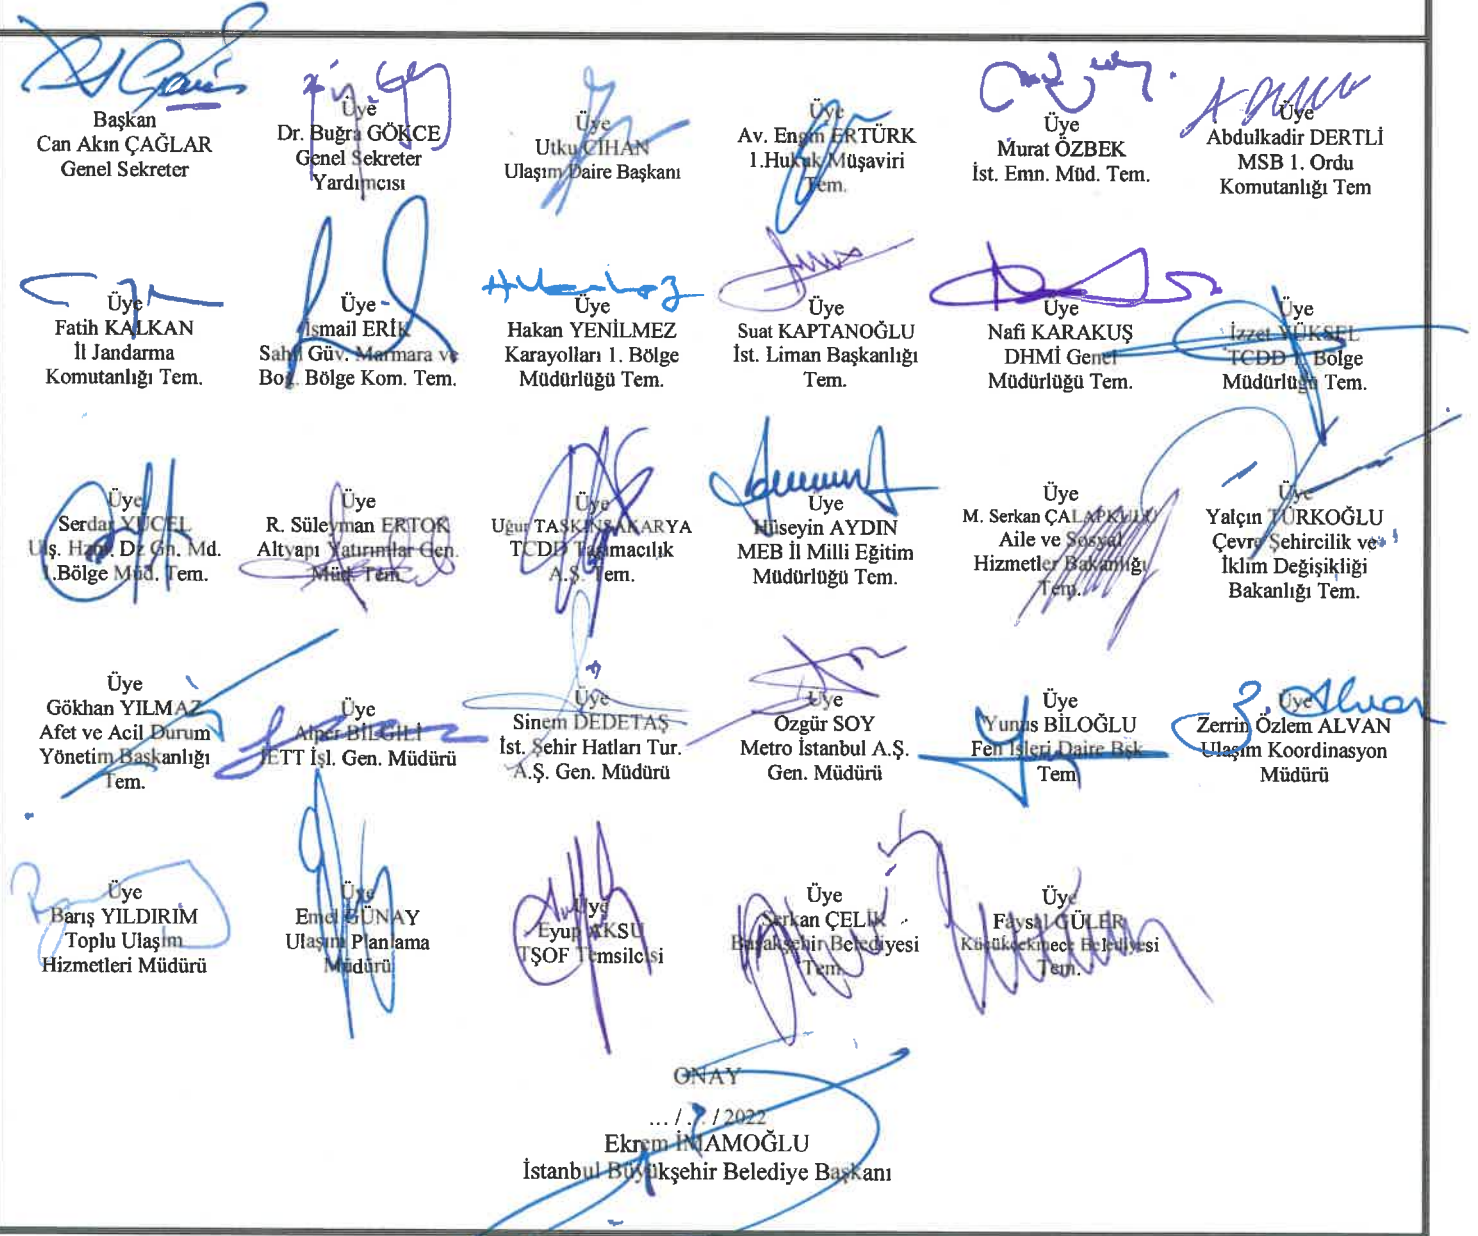 Başkan
Can Akın ÇAĞLAR
Genel Sekreter
Üye
Dr. Buğra GÖKCE
Genel Sekreter
Yardımcısı
Üye
Utku CİHAN
Ulaşım Daire Başkanı
Üye
Av. Engin ERTÜRK
1.Hukuk Müşaviri
Tem.
Üye
Murat ÖZBEK
İst. Emn. Müd. Tem.
Üye
Abdulkadir DERTLİ
MSB 1. Ordu
Komutanlığı Tem
Üye
Fatih KALKAN
İl Jandarma
Komutanlığı Tem.
Üye
İsmail ERİK
Sahil Güv. Marmara ve
Boğ. Bölge Kom. Tem.
Üye
Hakan YENİLMEZ
Karayolları 1. Bölge
Müdürlüğü Tem.
Üye
Suat KAPTANOĞLU
İst. Liman Başkanlığı
Tem.
Üye
Nafi KARAKUŞ
DHMİ Genel
Müdürlüğü Tem.
Üye
İzzet YÜKSEL
TCDD 1. Bölge
Müdürlüğü Tem.
Üye
Serdar YÜCEL
Ulş. Hzm. Dz Gn. Md.
1.Bölge Müd. Tem.
Üye
R. Süleyman ERTOK
Altyapı Yatırımlar Gen.
Müd. Tem.
Üye
Uğur TAŞKINSAKARYA
TCDD Taşımacılık
A.Ş. Tem.
Üye
Hüseyin AYDIN
MEB İl Milli Eğitim
Müdürlüğü Tem.
Üye
M. Serkan ÇALAPKULU
Aile ve Sosyal
Hizmetler Bakanlığı
Tem.
Üye
Yalçın TÜRKOĞLU
Çevre Şehircilik ve
İklim Değişikliği
Bakanlığı Tem.
Üye
Gökhan YILMAZ
Afet ve Acil Durum
Yönetim Başkanlığı
Tem.
Üye
Alper BİLGİLİ
İETT İşl. Gen. Müdürü
Üye
Sinem DEDETAŞ
İst. Şehir Hatları Tur.
A.Ş. Gen. Müdürü
Üye
Özgür SOY
Metro İstanbul A.Ş.
Gen. Müdürü
Üye
Yunus BİLOĞLU
Fen İşleri Daire Bşk
Tem
Üye
Zerrin Özlem ALVAN
Ulaşım Koordinasyon
Müdürü
Üye
Barış YILDIRIM
Toplu Ulaşım
Hizmetleri Müdürü
Üye
Emel GÜNAY
Ulaşım Planlama
Müdürü
Üye
Eyup AKSU
TŞOF Temsilcisi
Üye
Serkan ÇELİK
Başakşehir Belediyesi
Tem.
Üye
Faysal GÜLER
Küçükçekmece Belediyesi
Tem.
ONAY
... / / 2022
Ekrem İMAMOĞLU
İstanbul Büyükşehir Belediye Başkanı